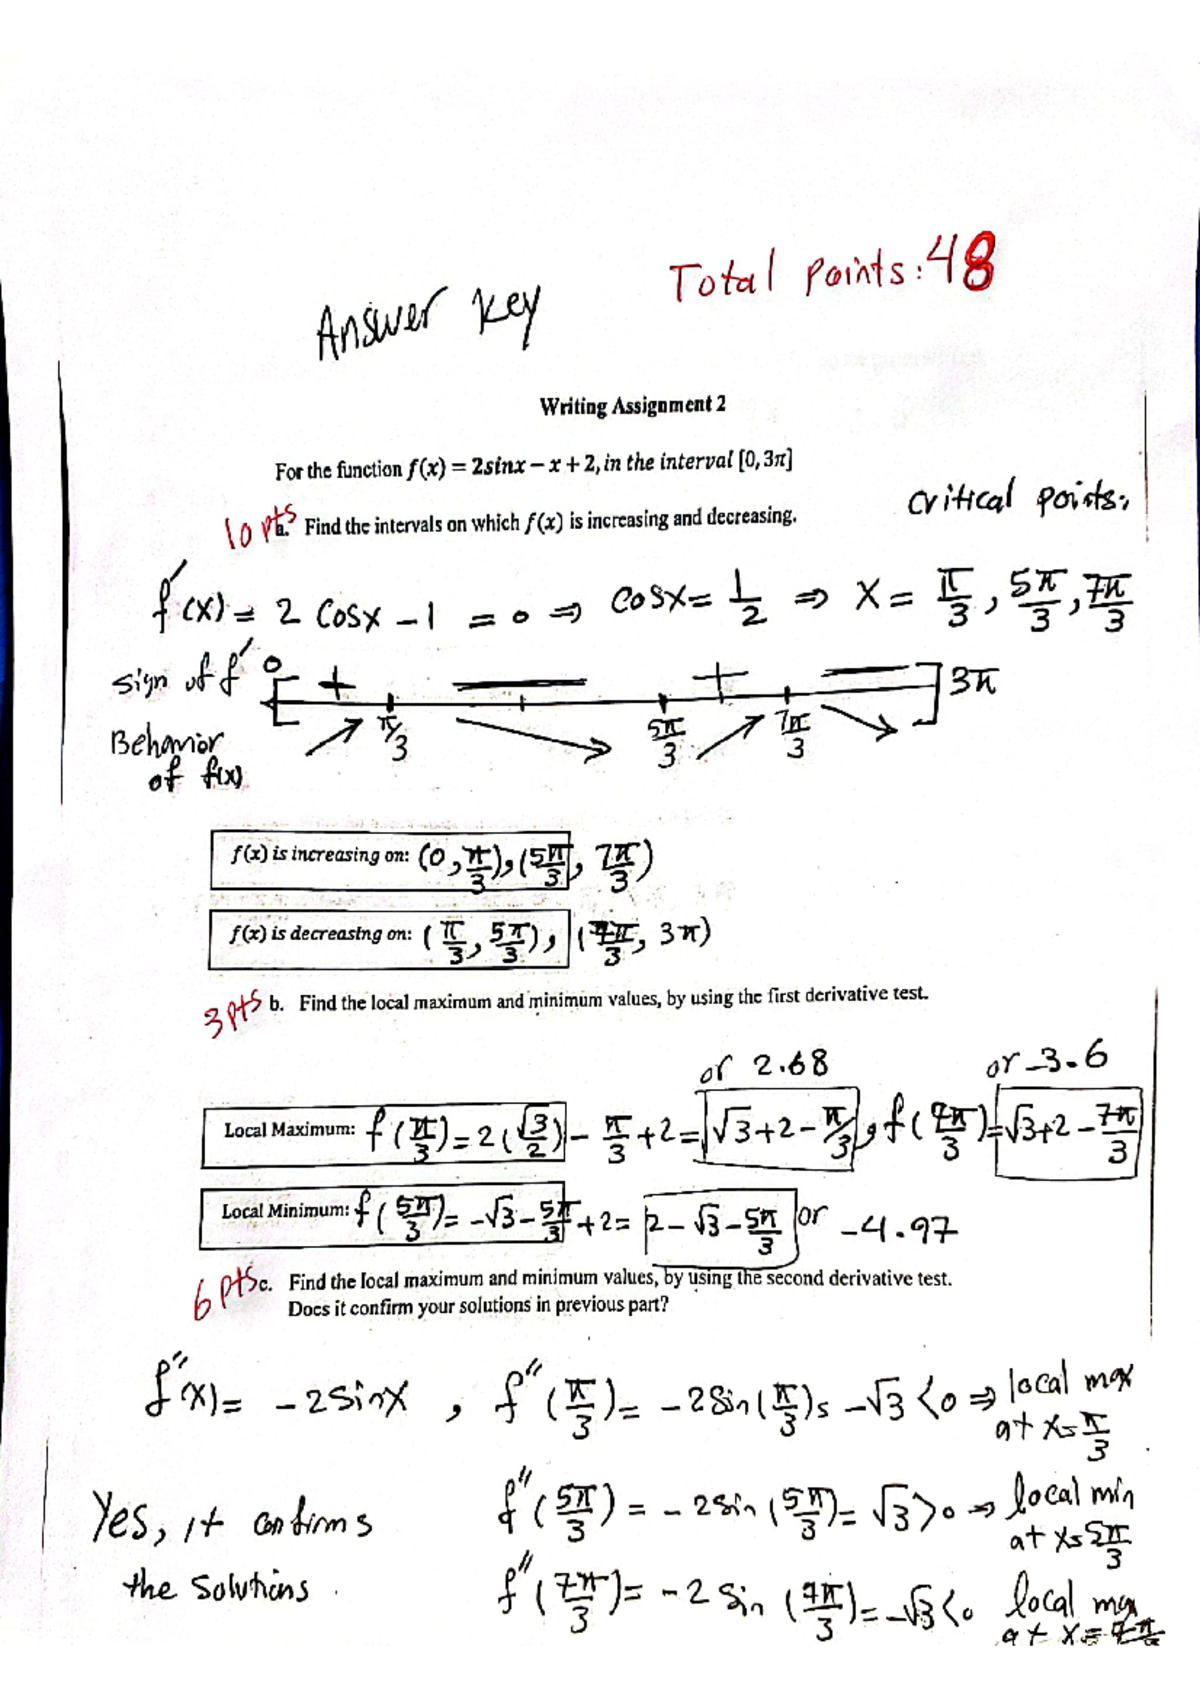 Total points: 48
Answer key
Writing Assignment 2
For the function f(x) = 2sinx − x + 2, in the interval [0, 3π]
critical points:
10 pts a. Find the intervals on which f(x) is increasing and decreasing.
f′(x) = 2 cosx − 1 = 0 ⇒ cosx = 1/2 ⇒ x = π/3, 5π/3, 7π/3
sign of f′ 0 [ + — + — ] 3π
π/3 5π/3 7π/3
Behavior
of f(x)
f(x) is increasing on: (0, π/3), (5π/3, 7π/3)
f(x) is decreasing on: (π/3, 5π/3), (7π/3, 3π)
3 pts b. Find the local maximum and minimum values, by using the first derivative test.
or 2.68 or −3.6
Local Maximum: f(π/3) = 2(√3/2) − π/3 + 2 = √3+2−π/3, f(7π/3) = √3+2−7π/3
Local Minimum: f(5π/3) = −√3 − 5π/3 + 2 = 2−√3−5π/3 or −4.97
6 pts c. Find the local maximum and minimum values, by using the second derivative test.
Does it confirm your solutions in previous part?
f″(x) = −2sinx , f″(π/3) = −2sin(π/3) = −√3 < 0 ⇒ local max
at x=π/3
Yes, it confirms
the solutions.
f″(5π/3) = −2sin(5π/3) = √3 > 0 ⇒ local min
at x=5π/3
f″(7π/3) = −2sin(7π/3) = −√3 < 0 local max
at x=7π/3